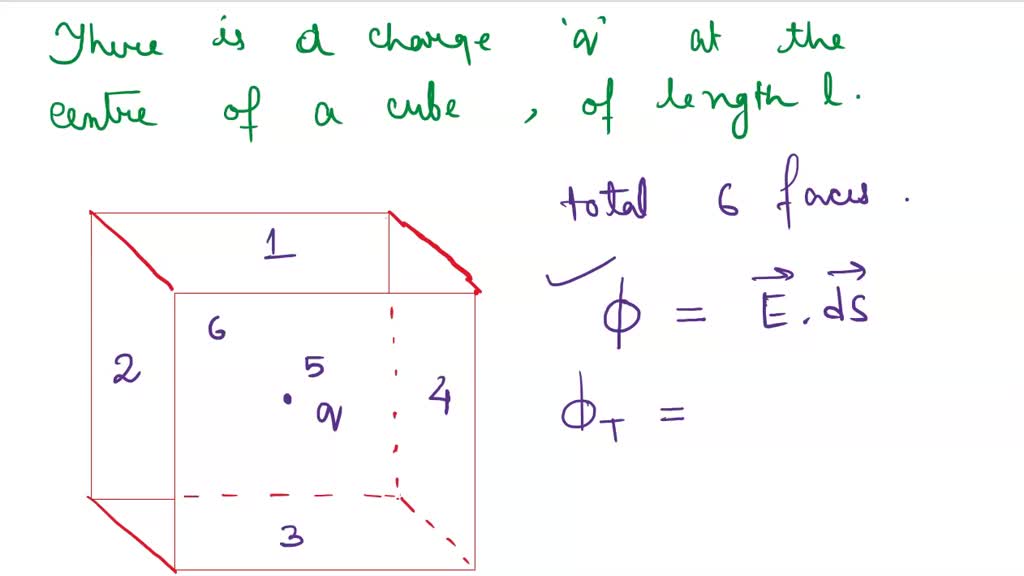 There is a charge 'q' at the
centre of a cube, of length l.
total 6 faces.
ϕ = E⃗ . dS⃗
ϕT =
1
6
2
5
q
4
3